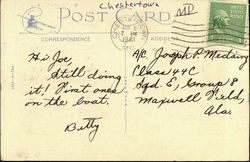 Chestertown
MD
POST CARD
1943
CORRESPONDENCE
Hi Joe,
Still doing
it! First ones
on the boat.
Betty
A/C. Joseph P.
Class 44C
Sqd. E, Group 8
Maxwell Field,
Ala.